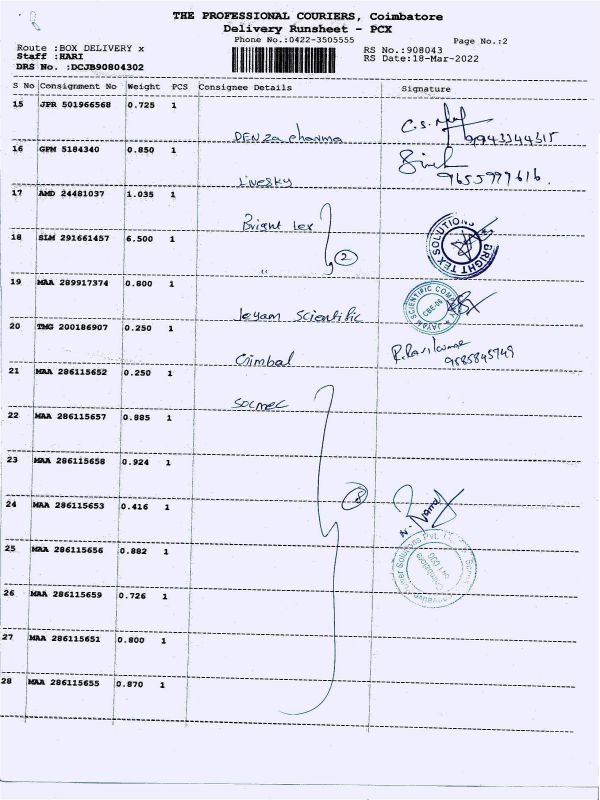 THE PROFESSIONAL COURIERS, Coimbatore
Delivery Runsheet - PCX
Phone No.:0422-3505555
Page No.:2
Route :BOX DELIVERY x
Staff :HARI
DRS No. :DCJB90804302
RS No.:908043
RS Date:18-Mar-2022
S No Consignment No Weight PCS Consignee Details Signature
15 JPR 501966568 0.725 1
DENZA pharma C.S. 9943344315
16 GPM 5184340 0.850 1
Livesky 9655999616.
17 AMD 24481037 1.035 1
Bright tex
18 SLM 291661457 6.500 1
2
BRIGHT TEX SOLUTIONS
19 MAA 289917374 0.800 1
Jeyam Scientific
JAYAM SCIENTIFIC COMPANY
CBE-06
20 TMG 200186907 0.250 1
Crimbal R.Ravikumar
9585845749
21 MAA 286115652 0.250 1
Socmec
22 MAA 286115657 0.885 1
23 MAA 286115658 0.924 1
24 MAA 286115653 0.416 1
8
25 MAA 286115656 0.882 1
Solutions Pvt.
Coimbatore
26 MAA 286115659 0.726 1
27 MAA 286115651 0.800 1
28 MAA 286115655 0.870 1